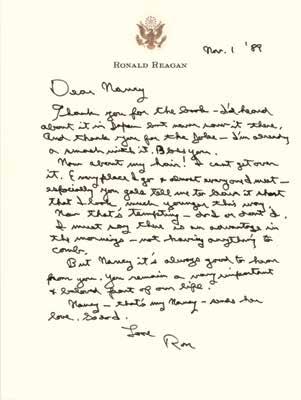 RONALD REAGAN
Nov. 1 '89
Dear Nancy
Thank you for the book – I'd heard
about it in Japan but never saw it there.
And thank you for the jokes – I'm already
a smash with it. Bless you.
Now about my hair! I can't get over
it. Every place I go & almost everyone I meet –
especially you gals tell me to leave it short
that I look much younger this way.
Now that's tempting –
I must say there is an advantage in
the mornings – not having anything to
comb.
But Nancy it's always good to hear
from you. You remain a very important
& beloved part of our life.
Nancy – that's my Nancy – sends her
love. So do I.
Love
Ron